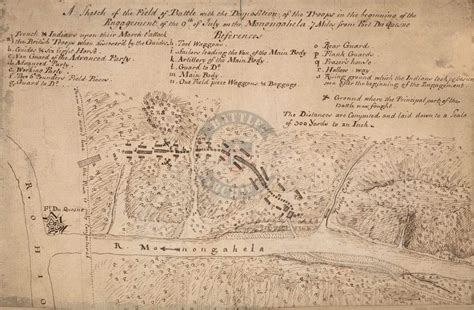 A Sketch of the Field of Battle with the Disposition of the Troops in the beginning of the
Engagement of the 9th of July on the Monongahela 7 Miles from Fort Du Quesne
References
French & Indians upon their March
a. the British Troops when discovered by the Guides
b. Guides & six Light Horse
c. Van Guard of the Advanced Party
d. Advanced Party
e.
f. Two 6 Pounders Field Pieces
g. Guard to Do
h. Tool Waggons
i. leading the Van of the Main Body
k. Artillery of the Main Body
l. Guard to Do
m. Main Body
n. One Field piece Waggons & Baggage
o Rear Guard
p Flank Guards
q Frazer's house
r. Hollow way
s Rising ground which the Indians took possession
soon after the beginning of the Engagement
Ground where the Principal part of the
Battle was fought
The Distances are Computed and laid down to a Scale
of 300 Yards to an Inch
BATTLE
Ft Du Quesne
R. OHIO
R. Monongahela